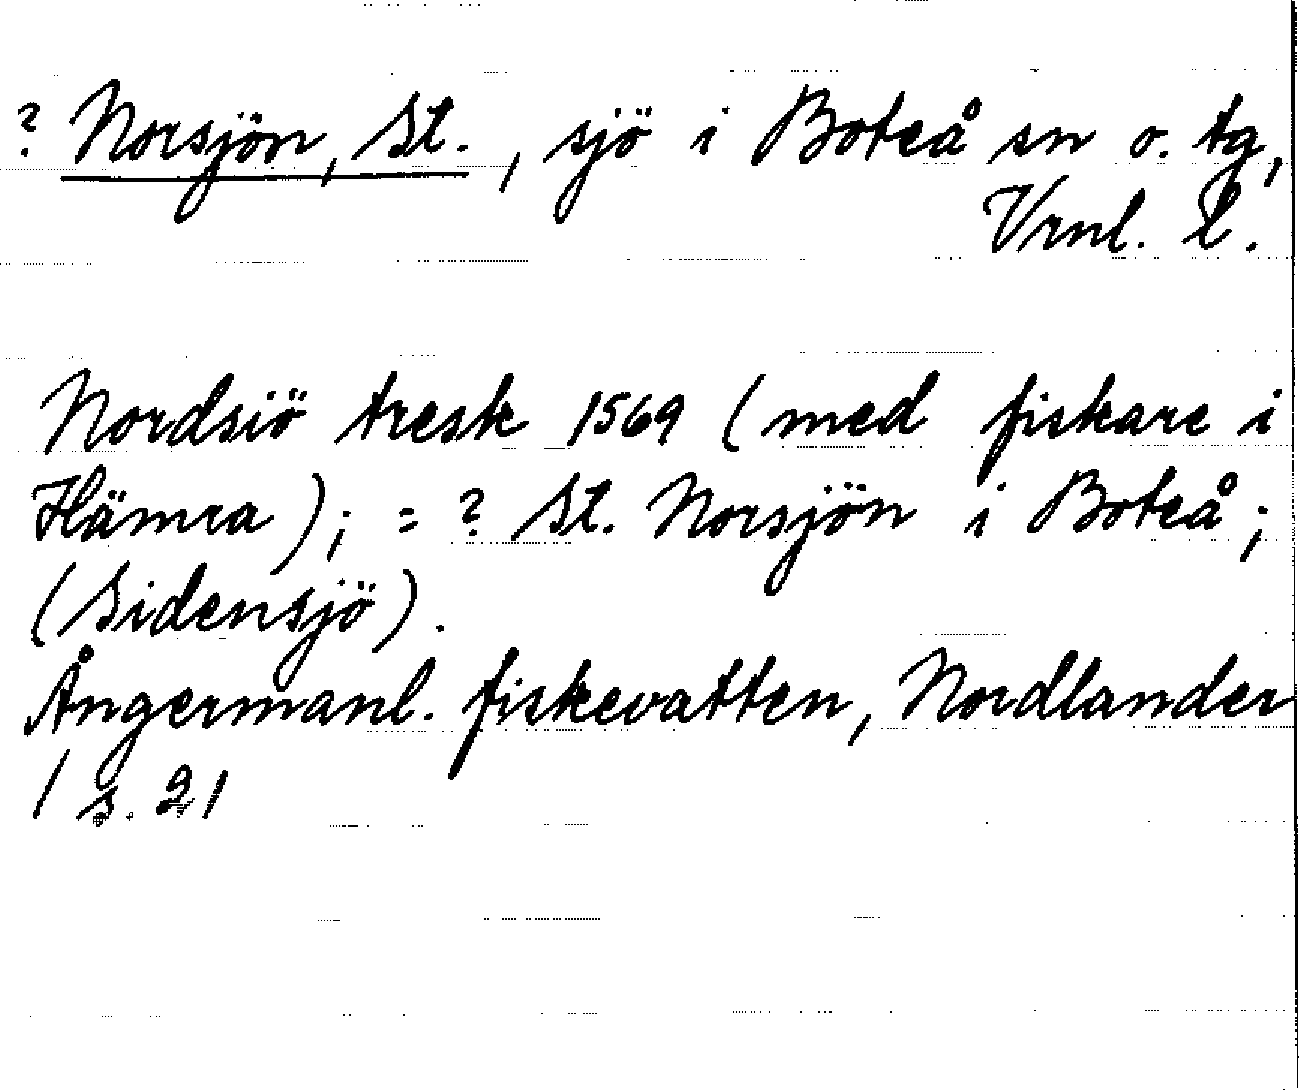 ? Norsjön, St., sjö i Boteå sn o. tg,
Vrnl. l.
Nordsiö tresk 1569 (med fiskare i
Hämra); = ? St. Norsjön i Boteå;
(Sidensjö).
Ångermanl. fiskevatten, Nordlander
/ s. 21